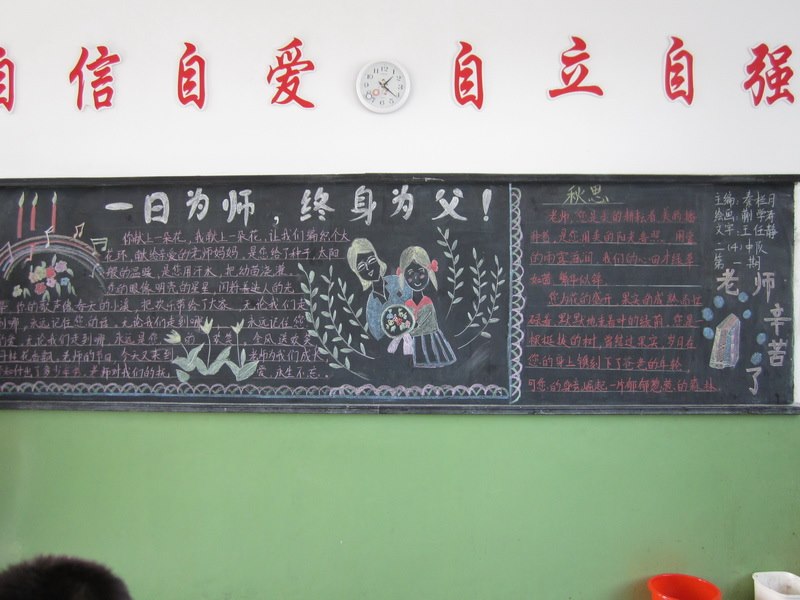 自信自爱 自立自强
一日为师，终身为父！
你献上一朵花，我献上一朵花，让我们编织个大
花环，献给亲爱的老师妈妈，是您给了种子，太阳
般的温暖，是您用汗水，把幼苗浇灌
的眼像明亮的星星，闪着善良的光
你的歌声像春天的小溪，把欢乐带给了大家，无论我们走
到哪，永远记住您的话，无论我们走到哪，永远记住您
无论我们走到哪
老师的节日，今天又来到，老师为我们成长
老师对我们的
爱，永生不忘
秋思
老师，您是美的耕耘者，美的播
种者，是您用美的阳光普照，用美
的雨露滋润，我们的心田才绿草
如茵，繁花似锦
您为花的盛开，果实的成熟忙
碌着，默默地垂着叶的绿荫，您是
挺拔的树，当掠过果实，岁月在
您的身上镌刻下了苍老的年轮
您的身旁崛起一片郁郁葱葱的森林
主编：
绘画：
文字：王任静
二(4)中队
第一期
老师辛苦了